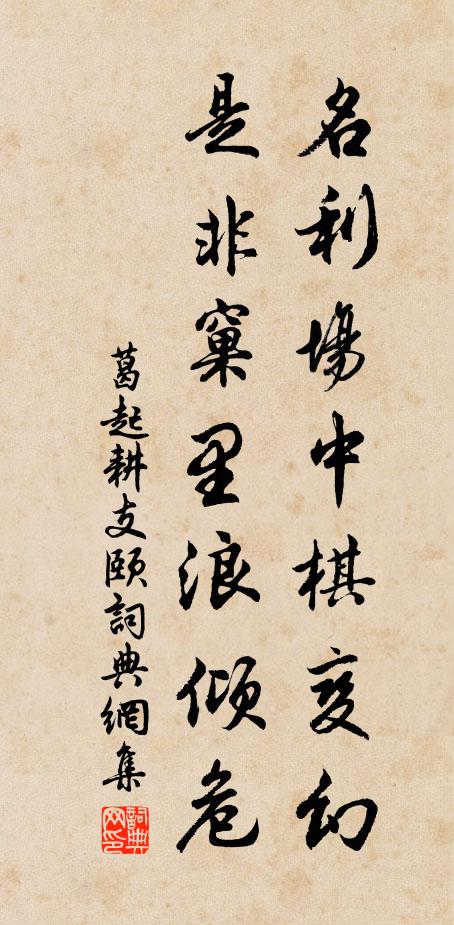 名利場中棋变幻
是非窠里浪傾危
葛起耕支頤詞典網集
詞典网印